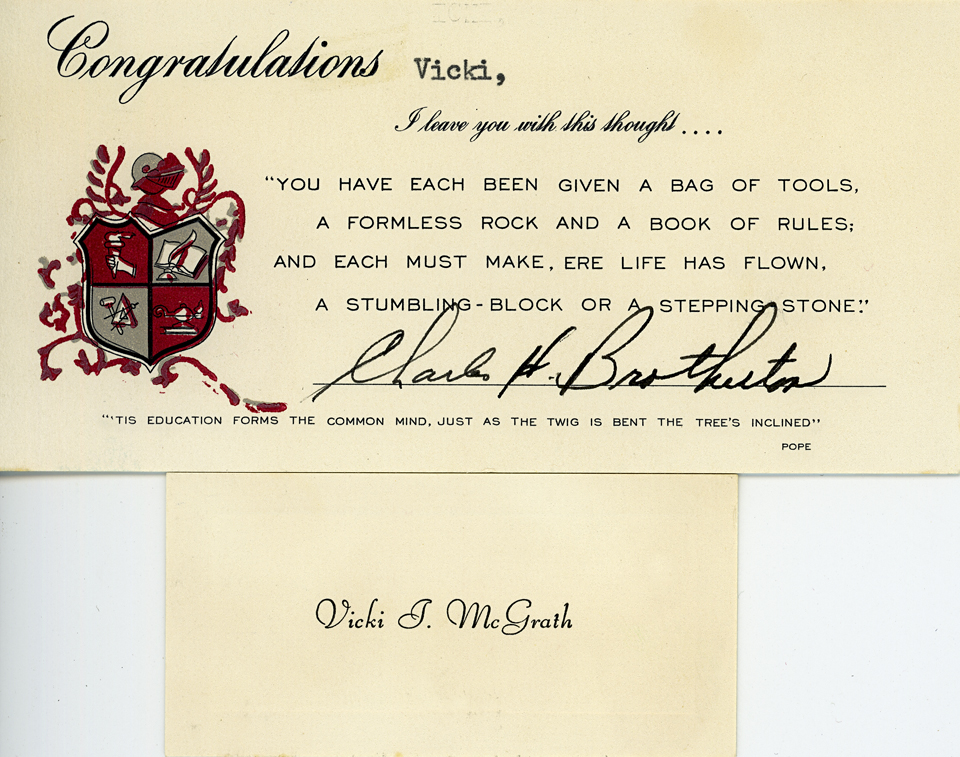 Congratulations Vicki,
I leave you with this thought....
"YOU HAVE EACH BEEN GIVEN A BAG OF TOOLS,
A FORMLESS ROCK AND A BOOK OF RULES;
AND EACH MUST MAKE, ERE LIFE HAS FLOWN,
A STUMBLING-BLOCK OR A STEPPING STONE."
Charles H. Brotherton
"'TIS EDUCATION FORMS THE COMMON MIND, JUST AS THE TWIG IS BENT THE TREE'S INCLINED"
POPE
Vicki J. McGrath